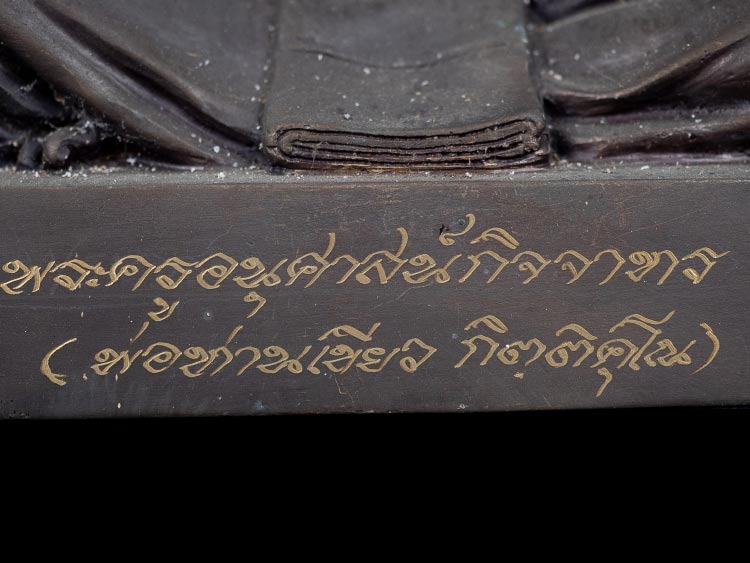 พระครูอนุศาสน์กิจจาทร
(พ่อท่านเขียว กิตฺติคุโณ)